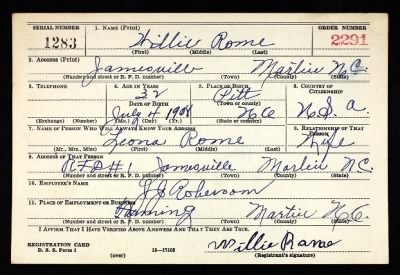 SERIAL NUMBER 1. NAME (Print) ORDER NUMBER
1283 Willie Rome 2291
(First) (Middle) (Last)
2. ADDRESS (Print)
Jamesville Martin N.C.
(Number and street or R. F. D. number) (Town) (County) (State)
3. TELEPHONE 4. AGE IN YEARS 5. PLACE OF BIRTH 6. COUNTRY OF CITIZENSHIP
32 Pitt
DATE OF BIRTH (Town or county)
July 4 1908 N C U. S. A.
(Exchange) (No.) (Mo.) (Day) (Yr.) (State or country)
7. NAME OF PERSON WHO WILL ALWAYS KNOW YOUR ADDRESS 8. RELATIONSHIP OF THAT PERSON
Leona Rome Wife
(Mr., Mrs., Miss) (First) (Middle) (Last)
9. ADDRESS OF THAT PERSON
R.F.D #1 Jamesville Martin N.C.
(Number and street or R. F. D. number) (Town) (County) (State)
10. EMPLOYER'S NAME
Roberson
11. PLACE OF EMPLOYMENT OR BUSINESS
Farming Martin N.C.
(Number and street or R. F. D. number) (Town) (County) (State)
I AFFIRM THAT I HAVE VERIFIED ABOVE ANSWERS AND THAT THEY ARE TRUE.
REGISTRATION CARD
D. S. S. Form 1 (over) 16—17105 Willie Rame
(Registrant's signature)